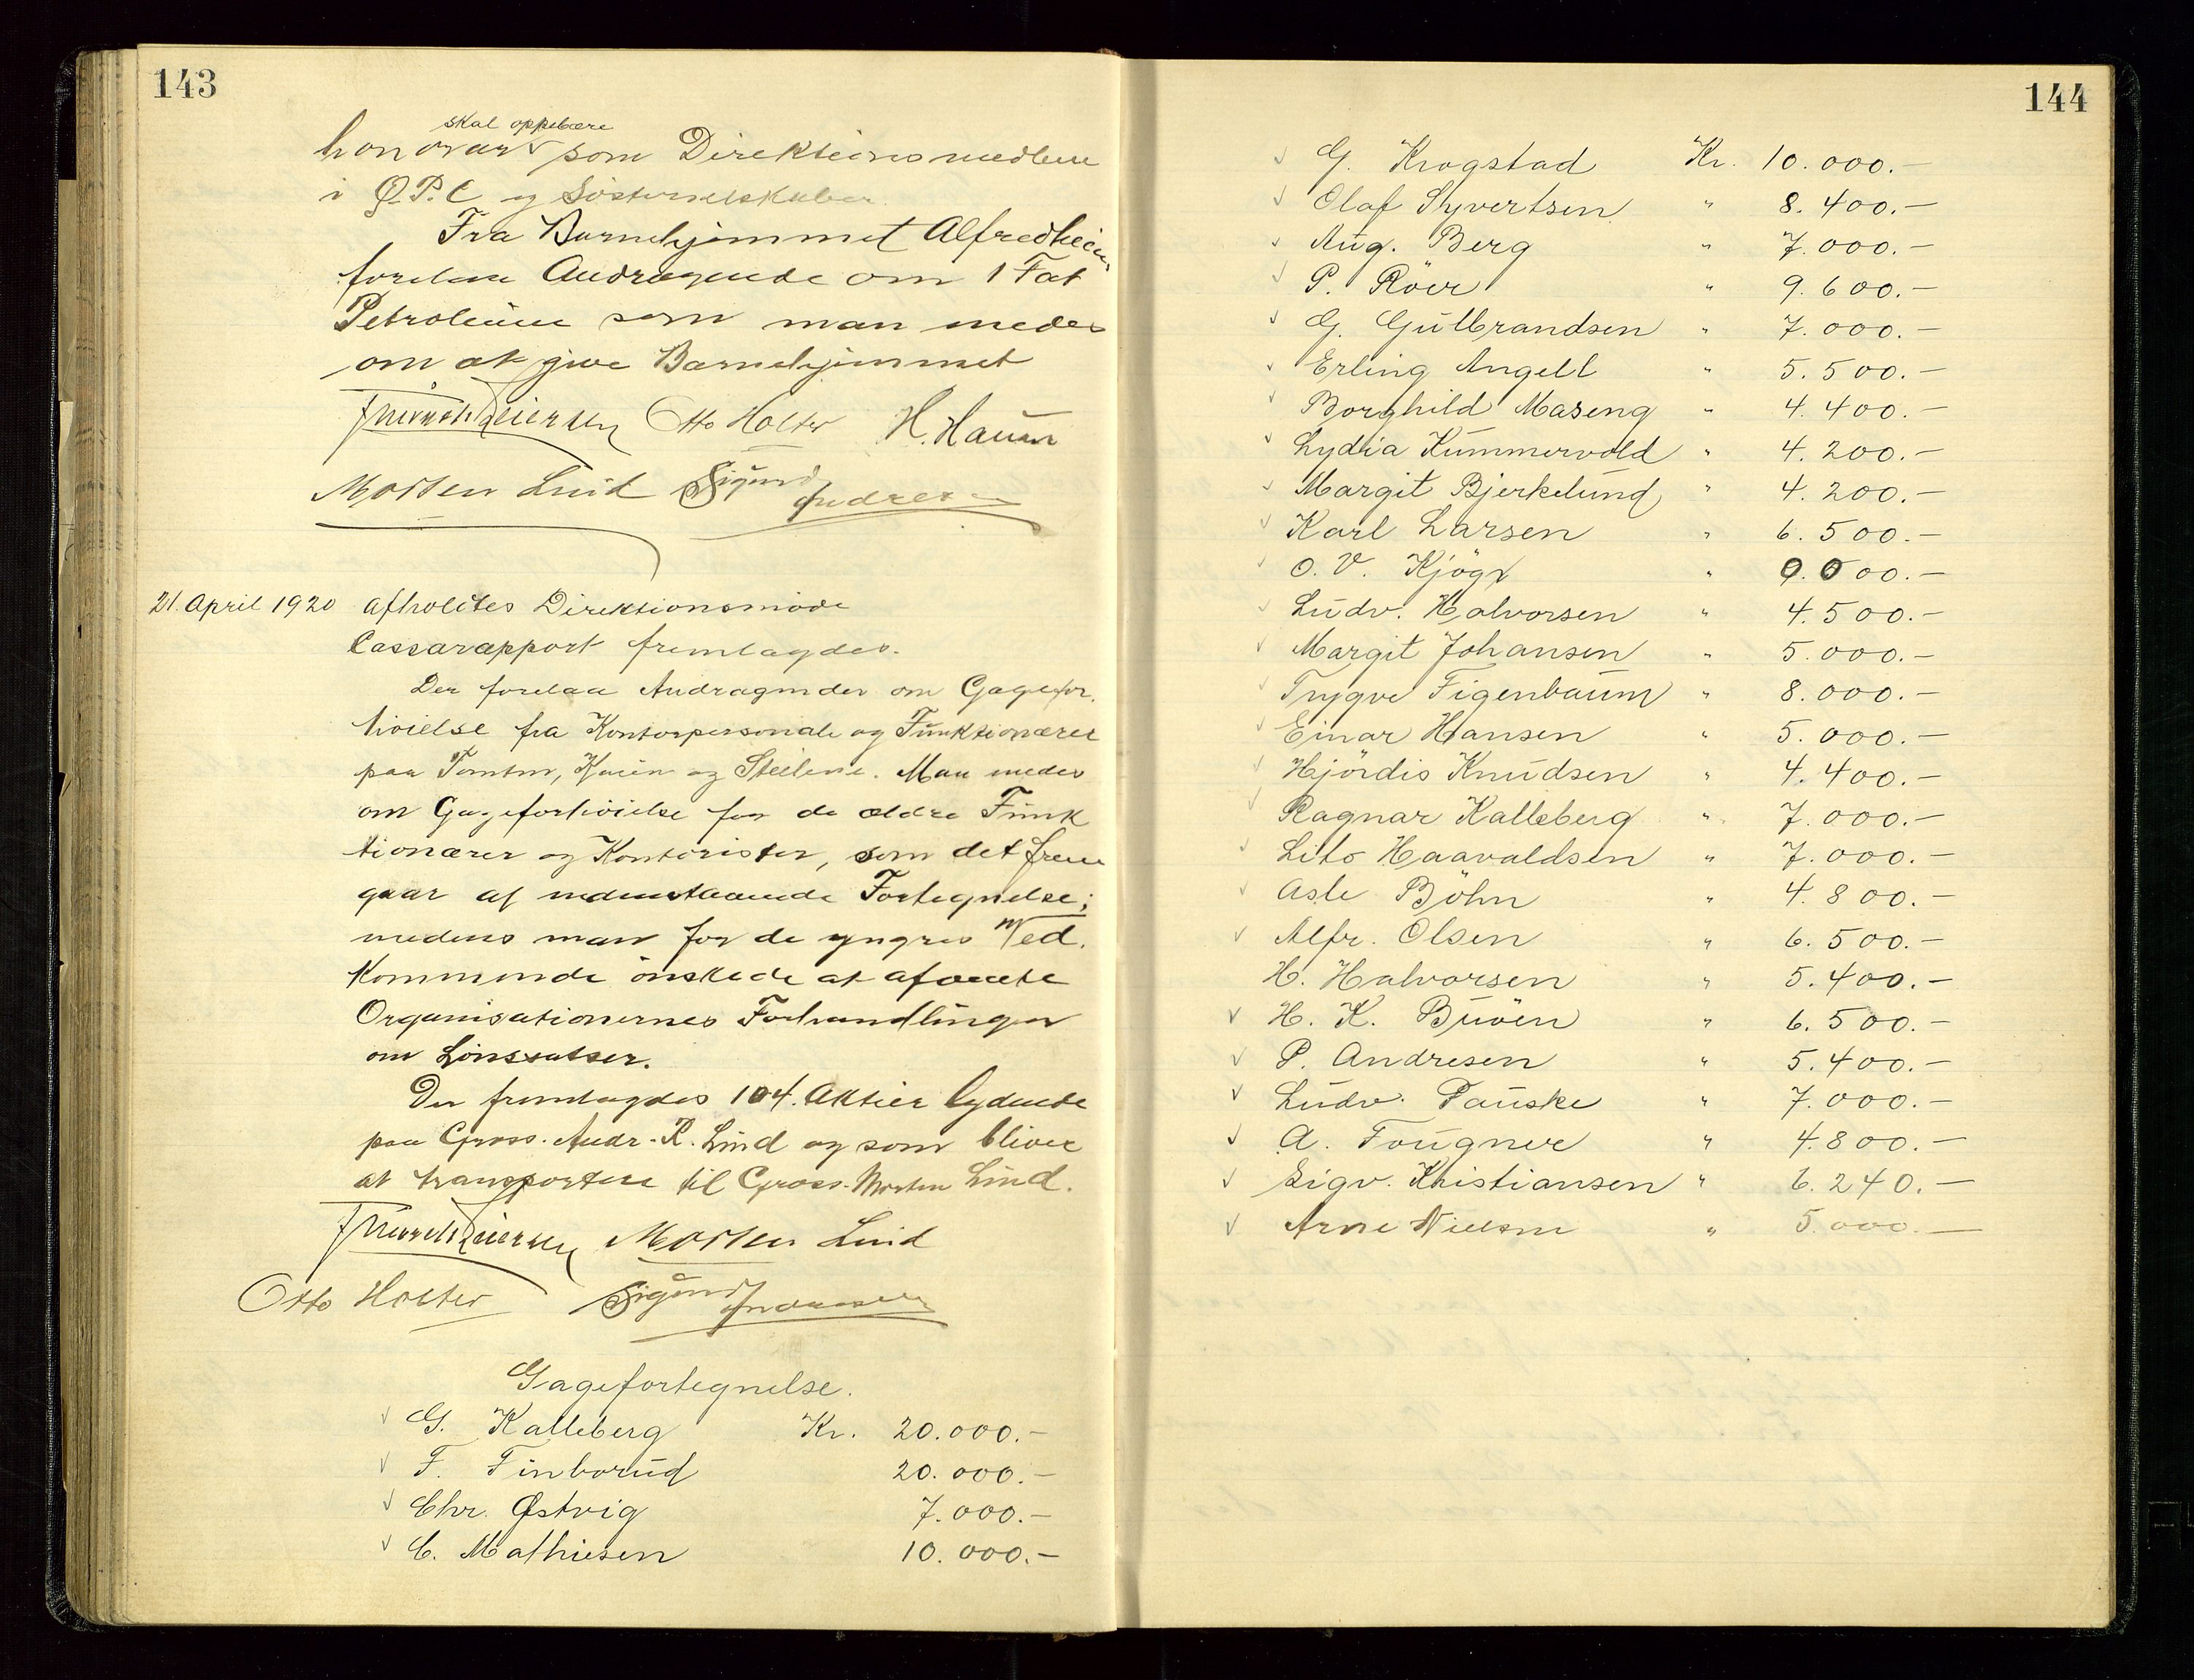 143
skal oppebære
honorar som Direktionsmedlem
i Ø.P.C og Søsterselskaber.
Fra Barnehjemmet Alfredheim
forelaa Andragende om 1 Fat
Petroleum som man medes
om at give Barnehjemmet
Otto Holter H. Hauan
Morten Lind Sigurd Andresen
21. April 1920 afholdtes Direktionsmöde
Cassarapport fremlagdes.
Der forelaa Andragender om Gagefor-
höielse fra Kontorpersonale og Funktionærer
paa Tomten, Kaien og Steilene. Man medes
om Gageforhöielse for de ældre Funk
tionærer og Kontorister, som det frem
gaar af nedenstaaende Fortegnelse;
medens man for de yngres Ved-
kommende önskede at afvente
Organisationernes Forhandlinger
om Lönssatser.
Der fremlagdes 104. Aktier lydende
paa Gross. Andr. R. Lind og som bliver
at transportere til Gross. Morten Lind.
Morten Lind
Otto Holter Sigurd Andresen
Gagefortegnelse.
G. Kalleberg Kr. 20.000.-
F. Finborud 20.000.-
Chr. Østvig 7.000.-
C. Mathiesen 10.000.-
144
G. Krogstad Kr. 10.000.-
Olaf Syvertsen " 8.400.-
Aug. Berg " 7.000.-
P. Röer " 9.600.-
G. Gulbrandsen " 7.000.-
Erling Angell " 5.500.-
Borghild Maseng " 4.400.-
Lydia Kummervold " 4.200.-
Margit Bjerkelund " 4.200.-
Karl Larsen " 6.500.-
O. V. Kjögx " 9.000.-
Ludv. Halvorsen " 4.500.-
Margit Johansen " 5.000.-
Trygve Figenbaum " 8.000.-
Einar Hansen " 5.000.-
Hjördis Knudsen " 4.400.-
Ragnar Kalleberg " 7.000.-
Lito Haavaldsen " 7.000.-
Asle Böhn " 4.800.-
Alfr. Olsen " 6.500.-
H. Halvorsen " 5.400.-
H. K. Buöen " 6.500.-
P. Andresen " 5.400.-
Ludv. Fauske " 7.000.-
A. Fougner " 4.800.-
Sigv. Kristiansen " 6.240.-
Arne Nielsen " 5.000.-